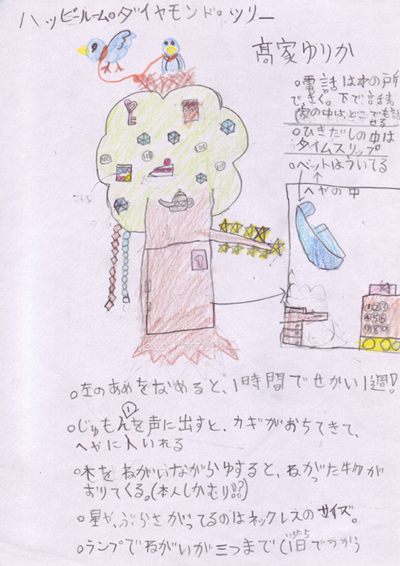 ハッピールーム・ダイヤモンド・ツリー
髙家ゆりか
○電話は木の所
できく。下で話す
家の中は、どこでも話
せる
○ひきだしの中は
タイムスリップ
○ベットはういてる
ヘヤの中
○左のあめをなめると、1時間でせかい1週!
○じゅもんを声に出すと、カギがおちてきて、
ヘヤに入いれる
○木をねがいながらゆすると、ねがった物が
おりてくる。(本人しかむり!!?)
○星や、ぶらさがってるのはネックレスのサイズ。
○ランプでねがいが三つまで(1日でつかう